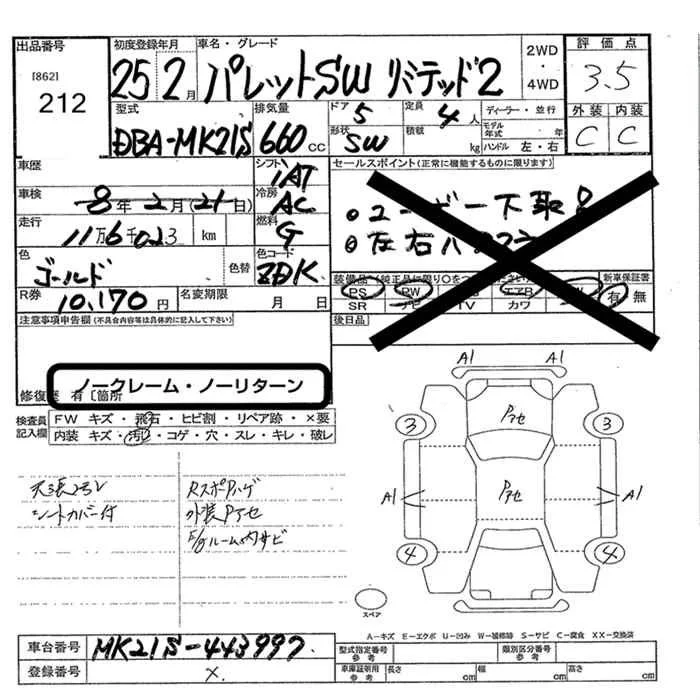 出品番号
[862]
212
初度登録年月
25 2月
車名・グレード
パレットSW リミテッド2
2WD
・
4WD
評価点
3.5
型式
DBA-MK21S
排気量
660 cc
ドア 5
形状 SW
定員 4人
積載 kg
ディーラー・並行
モデル年式 年
ハンドル 左・右
外装 内装
C C
車歴
シフト
IAT
セールスポイント(正常に機能するものに限ります)
車検
8年2月(21日)
冷房
AC
ユーザー下取
左右
走行
11万6千023 km
燃料
G
色
ゴールド
色替
色コード
ZDK
装備品(純正品に限り○をつけて
新車保証書
PS PW エアB
有 無
SR ナビ TV カワ
R券
10,170円
名変期限 月 日
後日品
注意事項申告欄(不具合内容等は具体的に記入して下さい)
ノークレーム・ノーリターン
修復歴 有〔箇所
検査員記入欄
FW キズ・飛石・ヒビ割・リペア跡・×要
内装 キズ・汚れ・コゲ・穴・スレ・キレ・破レ
シートカバー付
RスポIハゲ
外装Pアセ
E/gルーム内サビ
A1 A1
3 Pアセ 3
A1 Pアセ A1
4 4
スペア
A-キズ E-エクボ U-凹み W-補修跡 S-サビ C-腐食 XX-交換済
車台番号
MK21S-443997
型式指定番号参考
類別区分番号参考
登録番号
×
車庫証明用参考
長さ cm 幅 cm 高さ cm